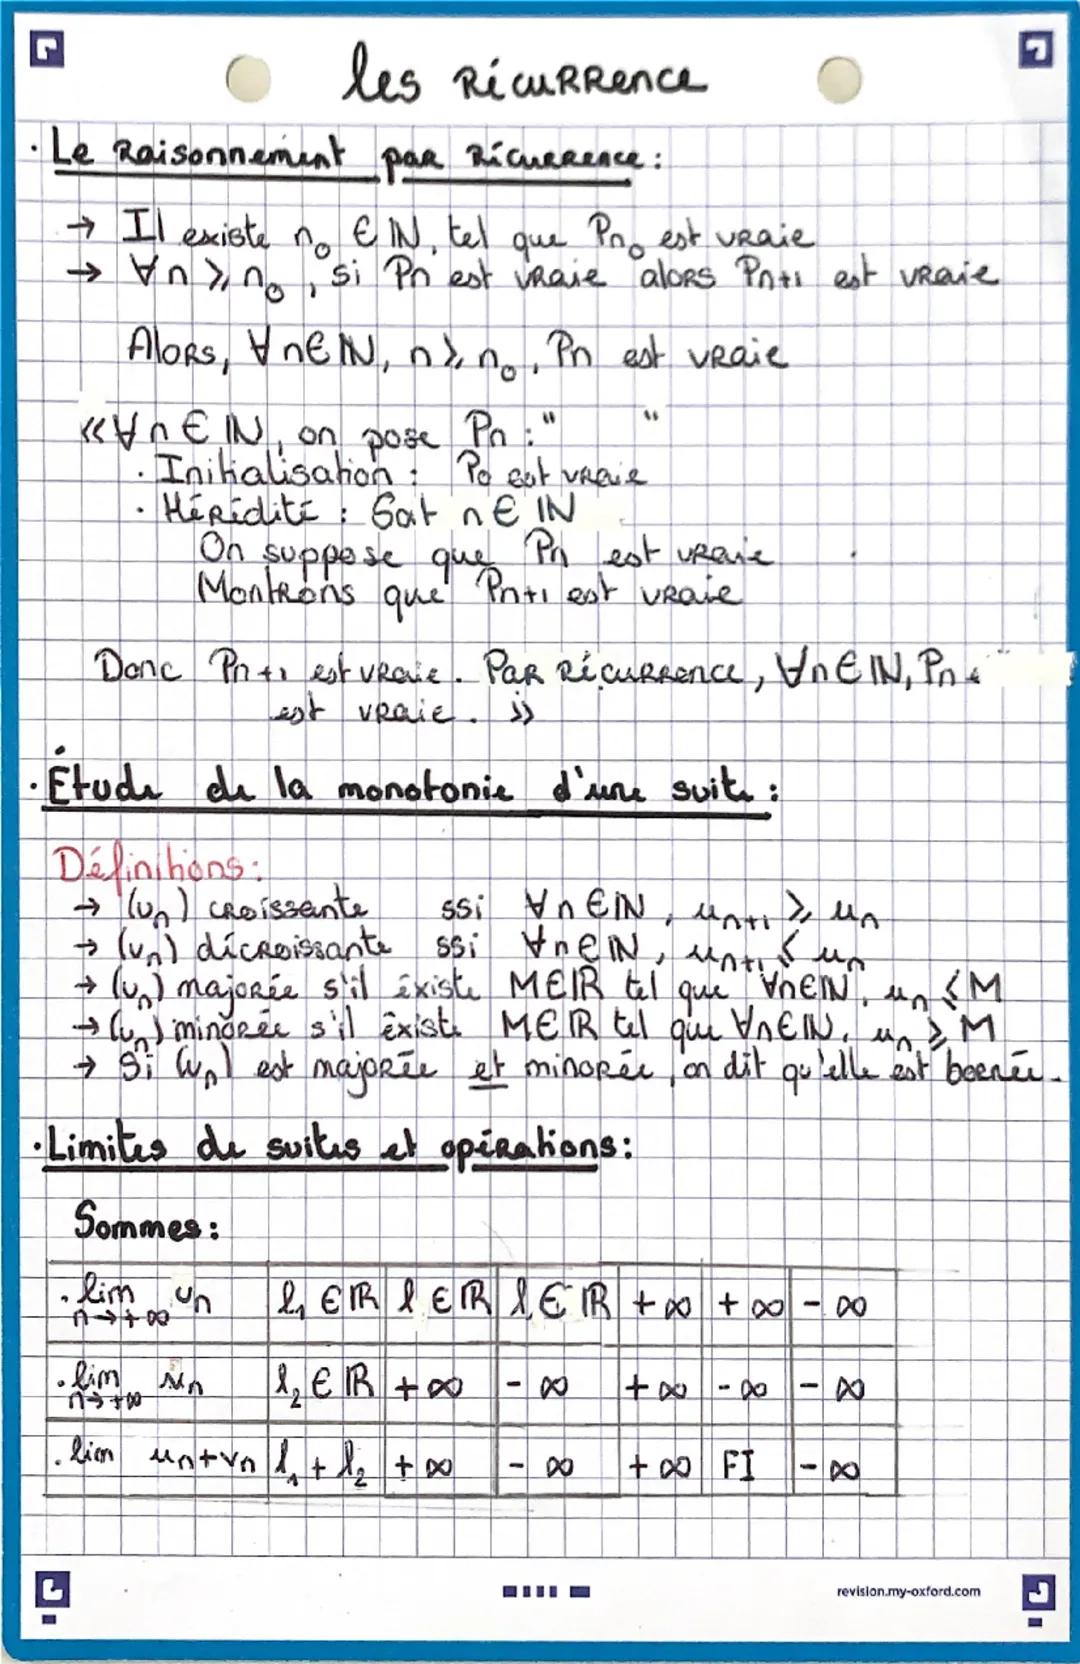 les Récurrence
· Le Raisonnement par Récurrence :
→ Il existe n₀ ∈ ℕ, tel que Pn₀ est vraie
→ ∀n ⩾ n₀, si Pn est vraie alors Pn+1 est vraie
Alors, ∀n∈ℕ, n ⩾ n₀, Pn est vraie
«∀n ∈ ℕ, on pose Pn : " "
· Initialisation : P₀ est vraie
· Hérédité : Soit n ∈ ℕ
On suppose que Pn est vraie
Montrons que Pn+1 est vraie
Donc Pn+1 est vraie. Par Récurrence, ∀n∈ℕ, Pn
est vraie. »
· Étude de la monotonie d'une suite :
Définitions :
→ (un) croissante ssi ∀n∈ℕ, un+1 ⩾ un
→ (un) décroissante ssi ∀n∈ℕ, un+1 ⩽ un
→ (un) majorée s'il éxiste M∈ℝ tel que ∀n∈ℕ, un ⩽ M
→ (un) minorée s'il éxiste M∈ℝ tel que ∀n∈ℕ, un ⩾ M
→ Si (un) est majorée et minorée, on dit qu'elle est bornée.
· Limites de suites et opérations :
Sommes :
· lim n→+∞ un | l₁ ∈ ℝ | l ∈ ℝ | l ∈ ℝ | +∞ | +∞ | -∞
· lim n→+∞ | l₂ ∈ ℝ | +∞ | -∞ | +∞ | -∞ | -∞
· lim un+vn | l₁ + l₂ | +∞ | -∞ | +∞ | FI | -∞
revision.my-oxford.com